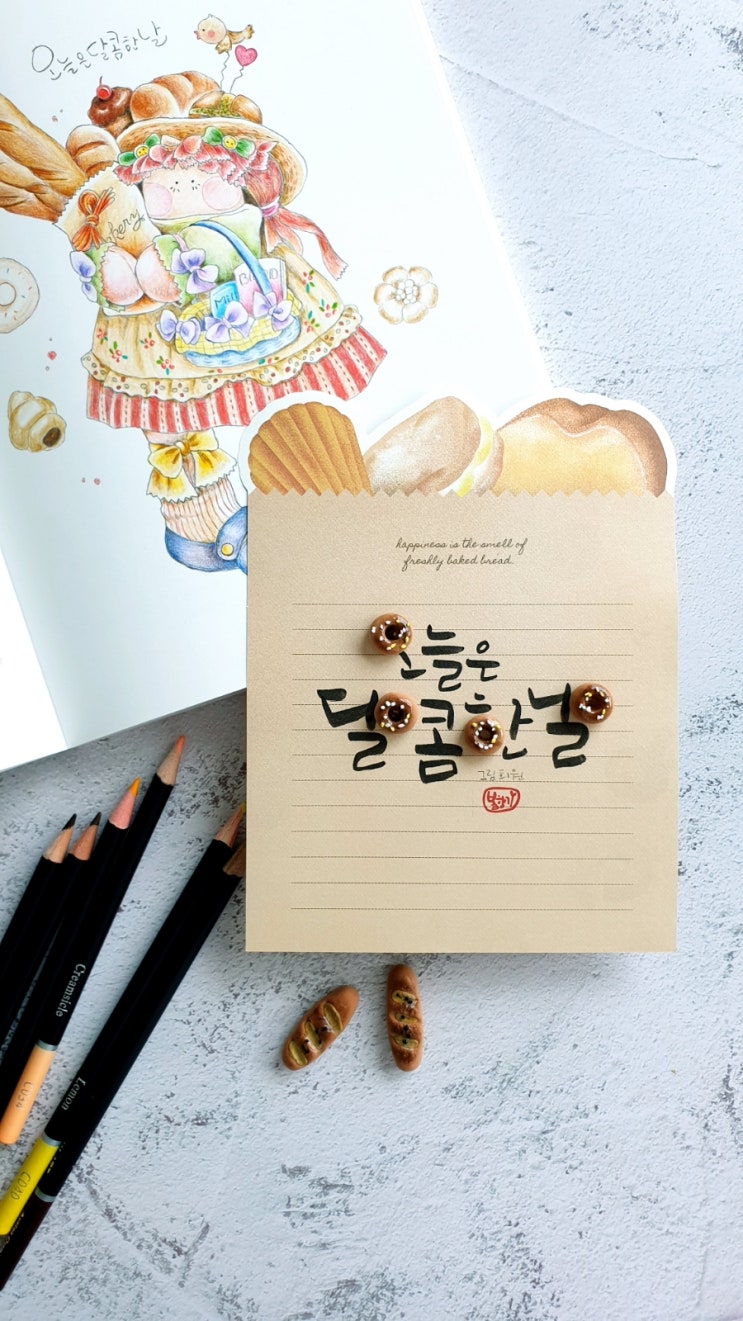 오늘은달콤한날
Bakery
Milk
BREAD
happiness is the smell of
freshly baked bread.
오늘은
달콤한날
그림회원
Creamsicle
Lemon